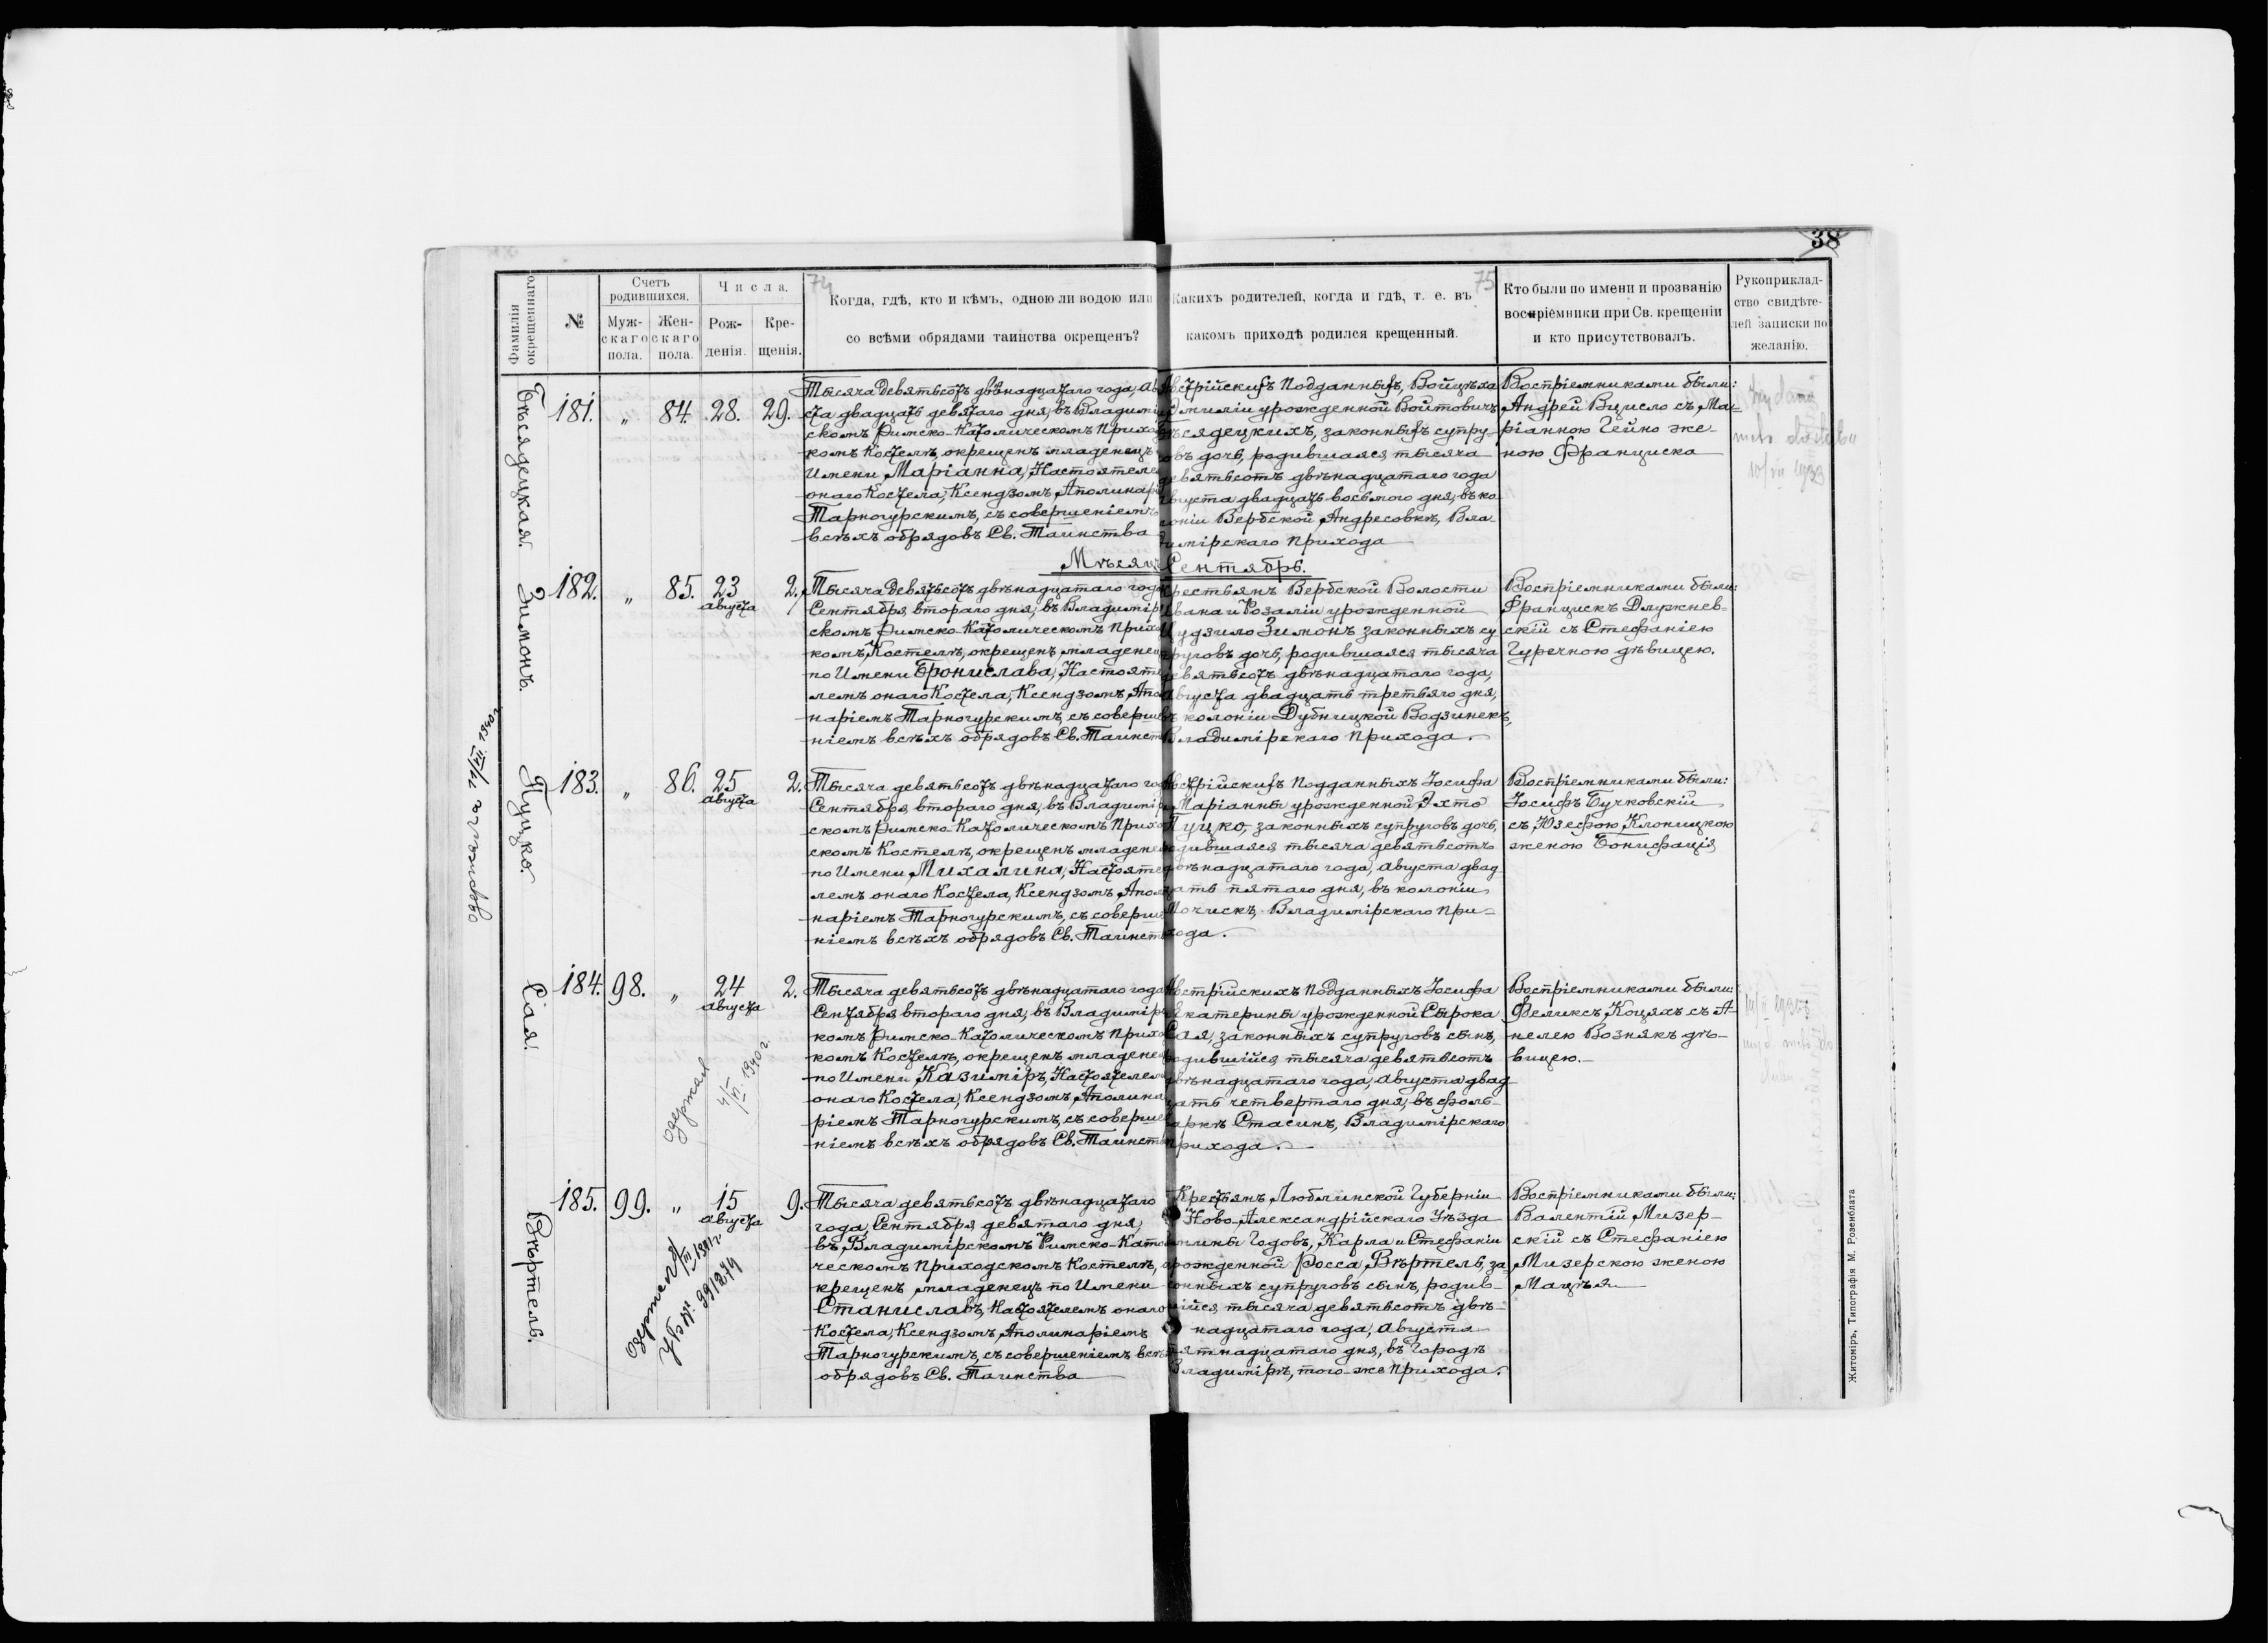 38
74
75
Фамилія окрещеннаго
№
Счетъ родившихся.
Мужскаго пола.
Женскаго пола.
Числа.
Рожденія.
Крещенія.
Когда, гдѣ, кто и кѣмъ, одною ли водою или
со всѣми обрядами таинства окрещенъ?
Какихъ родителей, когда и гдѣ, т. е. въ
какомъ приходѣ родился крещенный.
Кто были по имени и прозванію
воспріемники при Св. крещеніи
и кто присутствовалъ.
Рукоприклад-
ство свидѣте-
лей записки по
желанію.
Бѣсядецкая.
181. „ 84. 28. 29.
Тысяча девятьсотъ двѣнадцатаго года, Авгу
ста двадцать девятаго дня, въ Владимір
скомъ Римско-Католическомъ Приход
комъ Костелѣ, окрещенъ младенецъ
Имени Маріанна, Настоятеле
онаго Костела, Ксендзомъ Аполинарі
Тарногурскимъ, съ совершеніемъ
всѣхъ обрядовъ Св. Таинства
Австрійскихъ Подданныхъ, Войцѣха
Эмиліи урожденной Войтовичъ
Бѣсядецкихъ, законныхъ супру-
овъ дочь, родившаяся тысяча
девятьсотъ двѣнадцатаго года
Августа двадцать восьмого дня, въ ко
лоніи Вербской Андресовкѣ, Вла
димірскаго Прихода
Воспріемниками были:
Андрей Вцисло съ Ма-
ріанною Гейно же-
ною Франциска
10/VII 1933
Мѣсяцъ Сентябрь.
Зимонъ.
182. „ 85. 23 августа 2.
Тысяча Девятьсотъ двѣнадцатаго года
Сентября, втораго дня, въ Владимір
скомъ Римско-Католическомъ Прихо
комъ, Костелѣ, окрещенъ младенец
по Имени Брониславa, Настояте
лемъ онаго Костела, Ксендзомъ Апо
наріемъ Тарногурскимъ, съ соверше
ніемъ всѣхъ обрядовъ Св. Таинст
Крестьянъ Вербской Волости
Ивана и Розаліи урожденной
Цудзило Зимонъ законныхъ су
пруговъ дочь, родившаяся тысяча
девятьсотъ двѣнадцатаго года,
Августа двадцать третьяго дня,
въ колоніи Дубницкой Водзинекъ,
Владимірскаго Прихода.
Воспріемниками были:
Францискъ Длужнев-
скій съ Стефаніею
Гуречною дѣвицею.
одержала 11/VI. 1940 г.
Пуцко.
183. „ 86. 25 августа 2.
Тысяча девятьсотъ двѣнадцатаго го
Сентября, втораго дня, въ Владимір
скомъ Римско-Католическомъ Прихо
скомъ Костелѣ, окрещенъ младене
по Имени Михалина, Настояте
лемъ онаго Костела, Ксендзомъ Апол
наріемъ Тарногурскимъ, съ соверше
ніемъ всѣхъ обрядовъ Св. Таинст
Австрійскихъ Подданныхъ Іосифа
Маріанны урожденной Яхто
Пуцко, законныхъ супруговъ дочь,
родившаяся тысяча девятьсотъ
двѣнадцатаго года, Августа двад
цать пятаго дня, въ колоніи
Мочискъ, Владимірскаго При-
хода.
Воспріемниками были:
Іосифъ Бучковскій
съ Юзефою Клоницкою
женою Бонифація
Сіая.
184. 98. „ 24 августа 2.
одержал 4/VI. 1940 г.
Тысяча девятьсотъ двѣнадцатаго года
Сентября втораго дня, въ Владимір
комъ Римско-Католическомъ Прихо
комъ Костелѣ, окрещенъ младене
по Имени Казиміръ, Настоятелем
онаго Костела, Ксендзомъ Аполина
ріемъ Тарногурскимъ, съ соверше
ніемъ всѣхъ обрядовъ Св. Таинст
Австрійскихъ Подданныхъ Іосифа
Екатерины урожденной Сырока
Сая, законныхъ супруговъ сынъ,
родившійся тысяча девятьсотъ
двѣнадцатаго года, Августа двад
цать четвертаго дня, въ фоль-
варкѣ Стасинъ, Владимірскаго
прихода.
Воспріемниками были:
Феликсъ Коцяхъ съ А-
нелею Вознякъ дѣ-
вицею.
Вѣртель.
185. 99. „ 15 августа 9.
Тысяча девятьсотъ двѣнадцатаго
года, Сентября девятаго дня,
въ Владимірскомъ Римско-Като
ческомъ Приходскомъ Костелѣ, о
крещенъ младенецъ по Имени
Станиславъ, Настоятелемъ онаго
Костела, Ксендзомъ Аполинаріемъ
Тарногурскимъ, съ совершеніемъ всѣ
обрядовъ Св. Таинства
Крестьянъ Люблинской Губерніи
Ново-Александрійскаго Уѣзда
мины Годовъ, Карла и Стефаніи
рожденной Росса, Вѣртель, за-
конныхъ супруговъ сынъ, родив-
шійся тысяча девятьсотъ двѣ-
надцатаго года, Августа
пятнадцатаго дня, въ Городѣ
Владимірѣ, того-же Прихода.
Воспріемниками были:
Валентій Мизер-
скій съ Стефаніею
Мизерскою женою
Мацѣя
Житоміръ, Типографія М. Розенблата